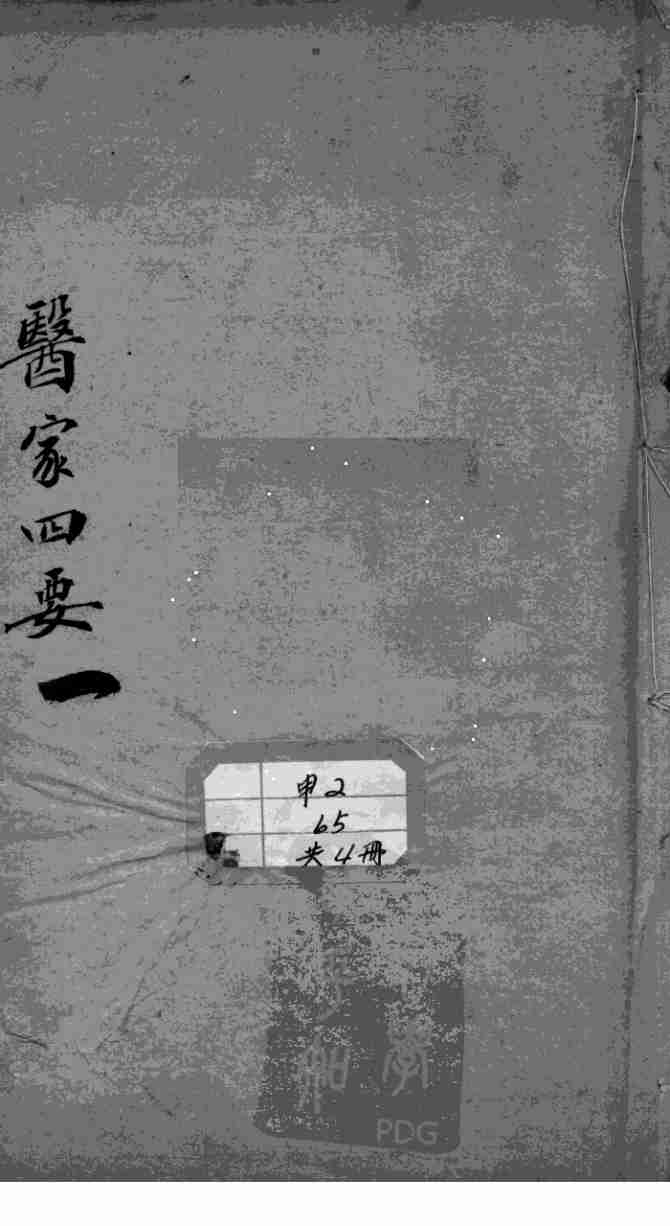 醫家四要一
申2
65
共4冊
PDG